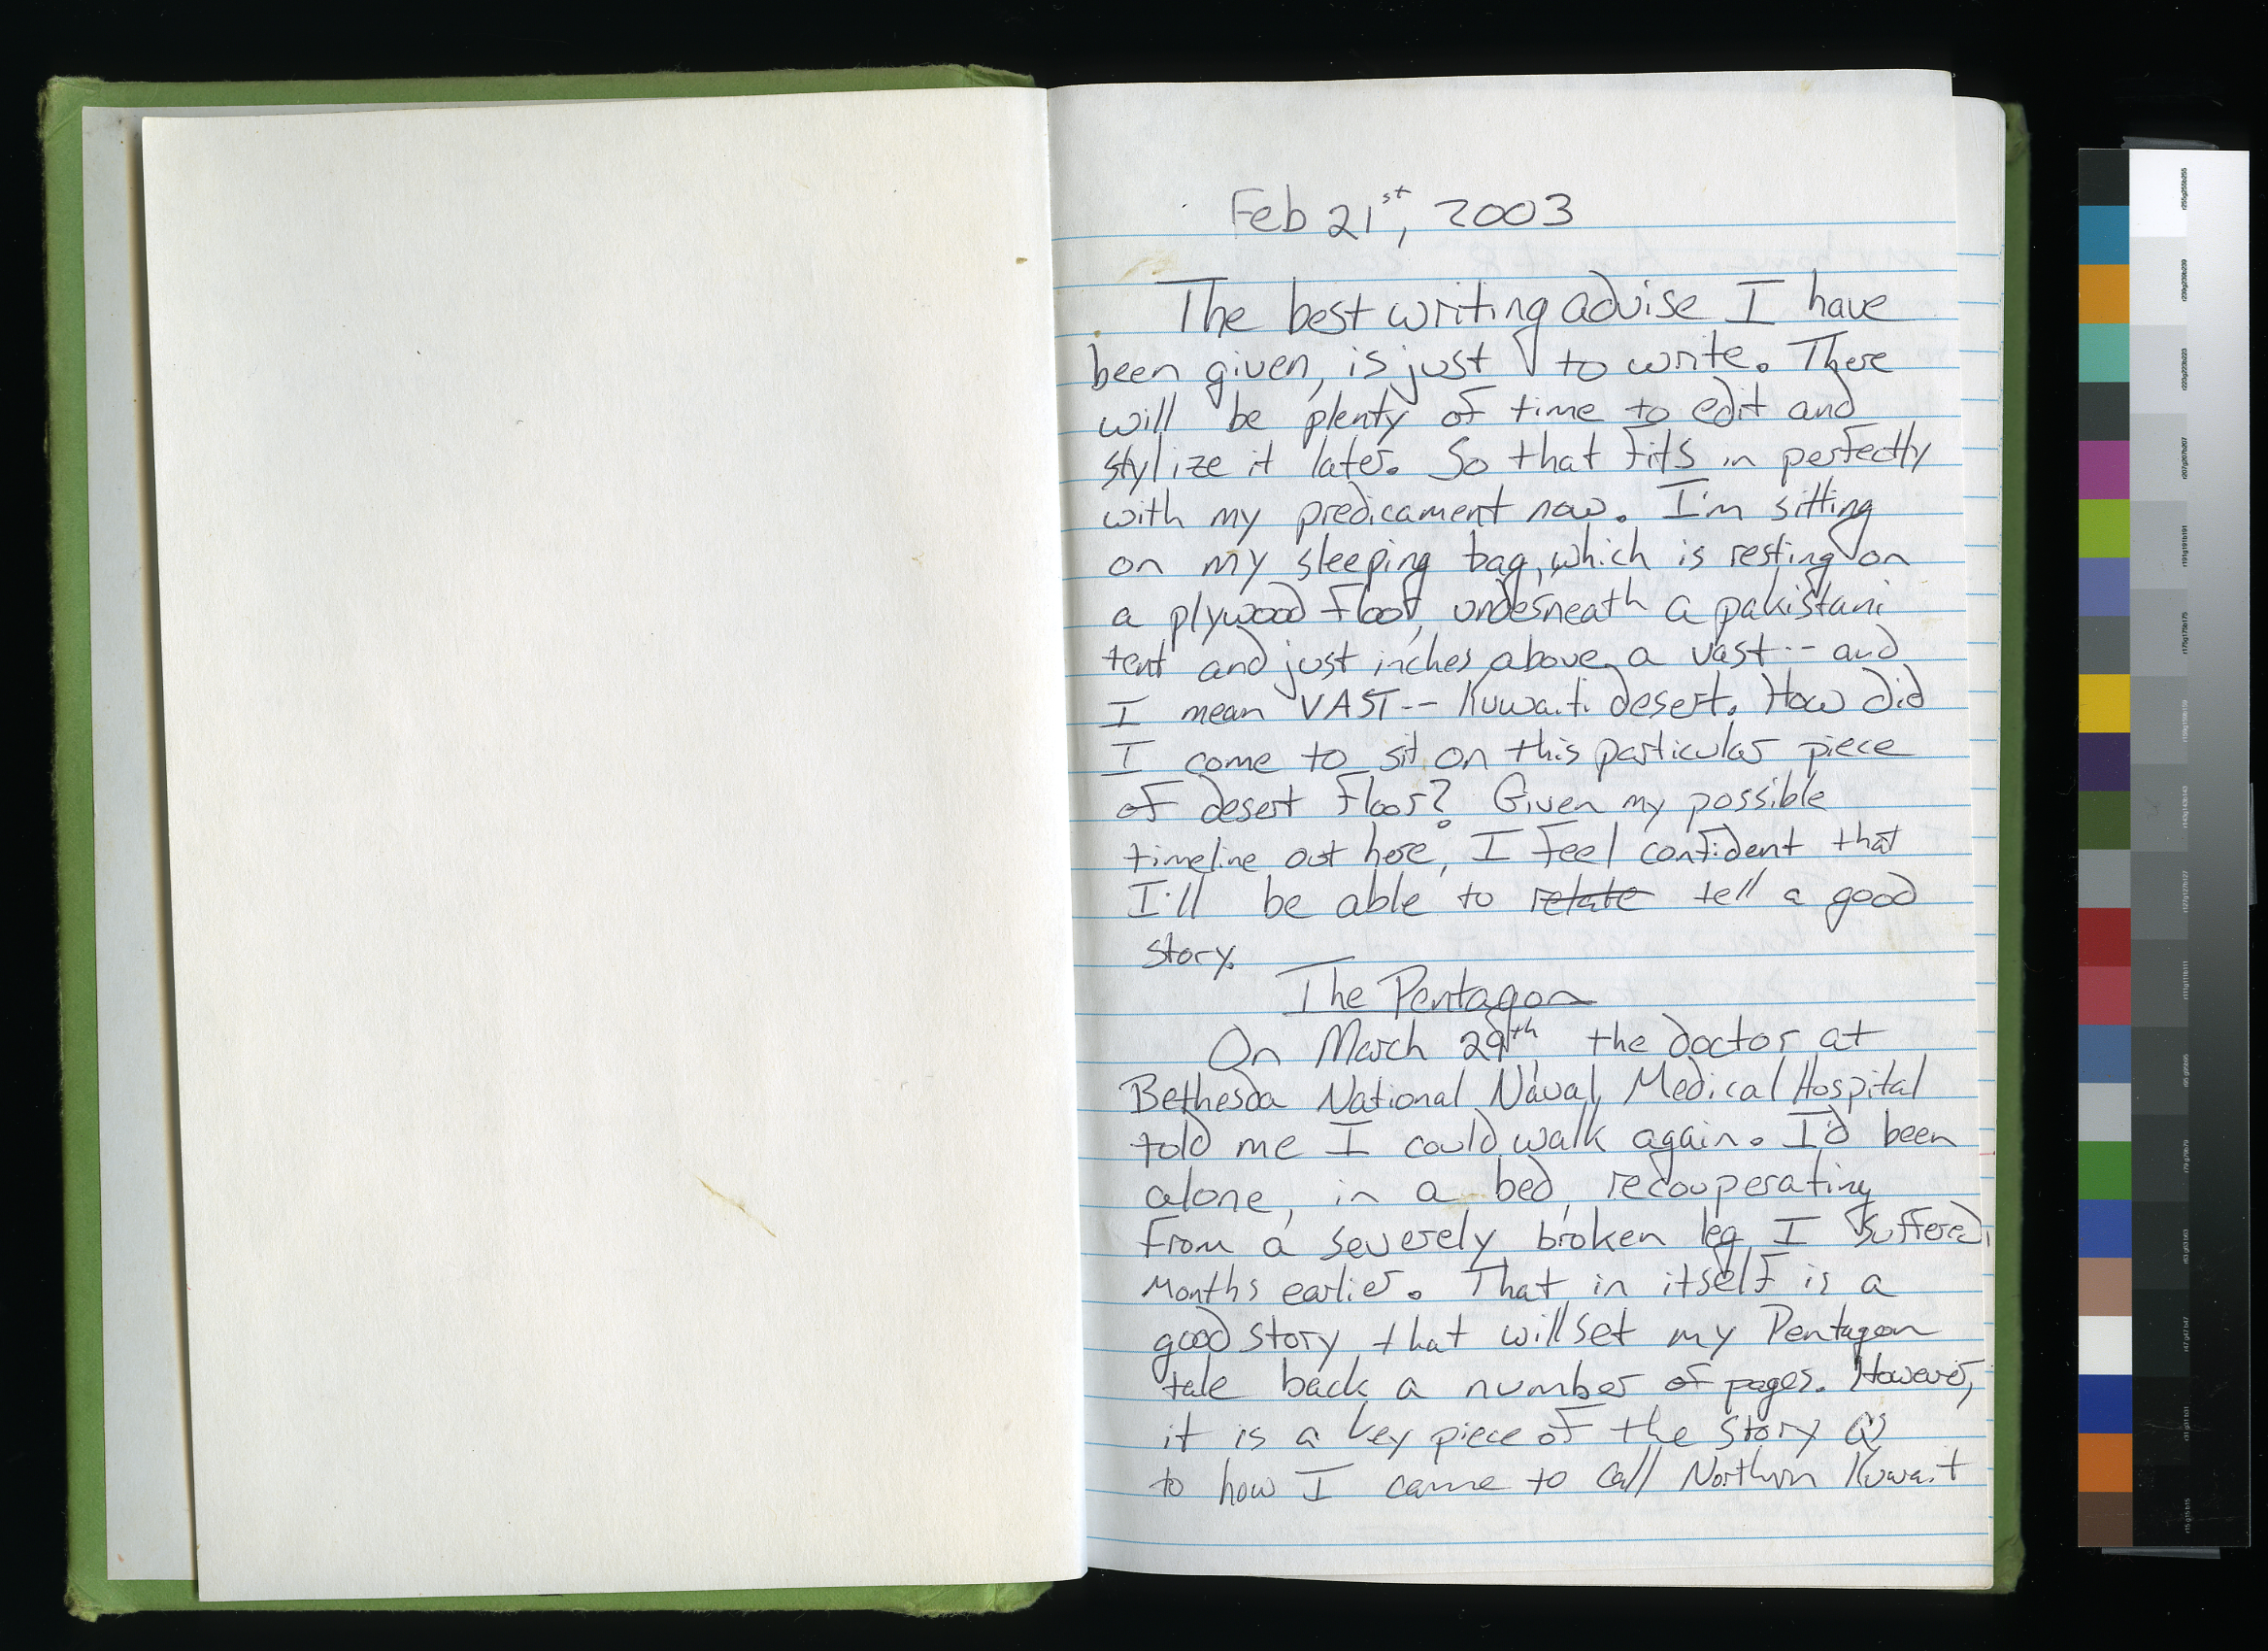 Feb 21st, 2003
The best writing advise I have
been given, is just to write. There
will be plenty of time to edit and
stylize it later. So that fits in perfectly
with my predicament now. I'm sitting
on my sleeping bag, which is resting on
a plywood floor, underneath a pakistani
tent and just inches above a vast -- and
I mean VAST -- Kuwaiti desert. How did
I come to sit on this particular piece
of desert floor? Given my possible
timeline out here, I feel confident that
I'll be able to relate tell a good
story.
The Pentagon
On March 29th, the doctor at
Bethesda National Naval Medical Hospital
told me I could walk again. I'd been
alone, in a bed, recouperating
from a severely broken leg I suffered
months earlier. That in itself is a
good story that will set my Pentagon
tale back a number of pages. However,
it is a key piece of the story as
to how I came to call Northern Kuwait